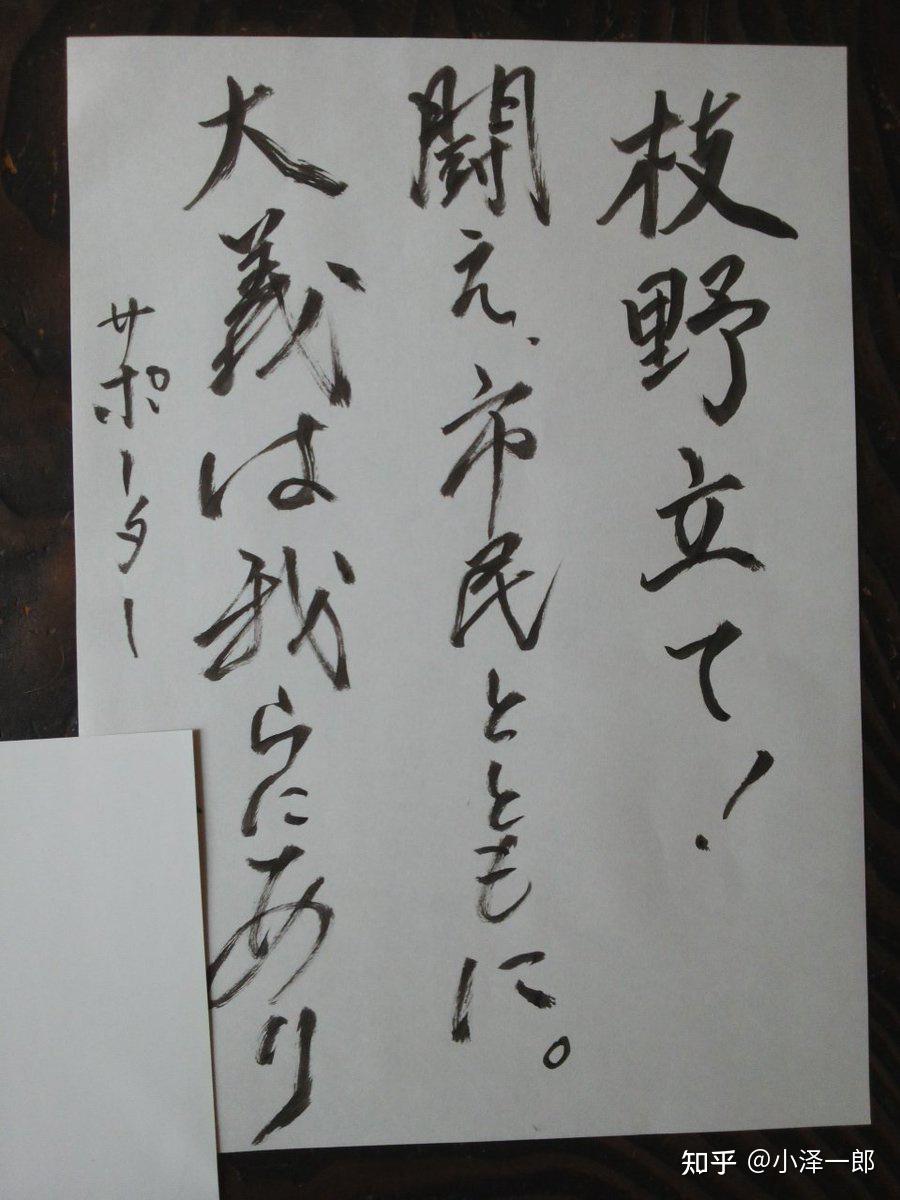 枝野立て!
闘え、市民とともに。
大義は我らにあり
サポーター
知乎 @小泽一郎